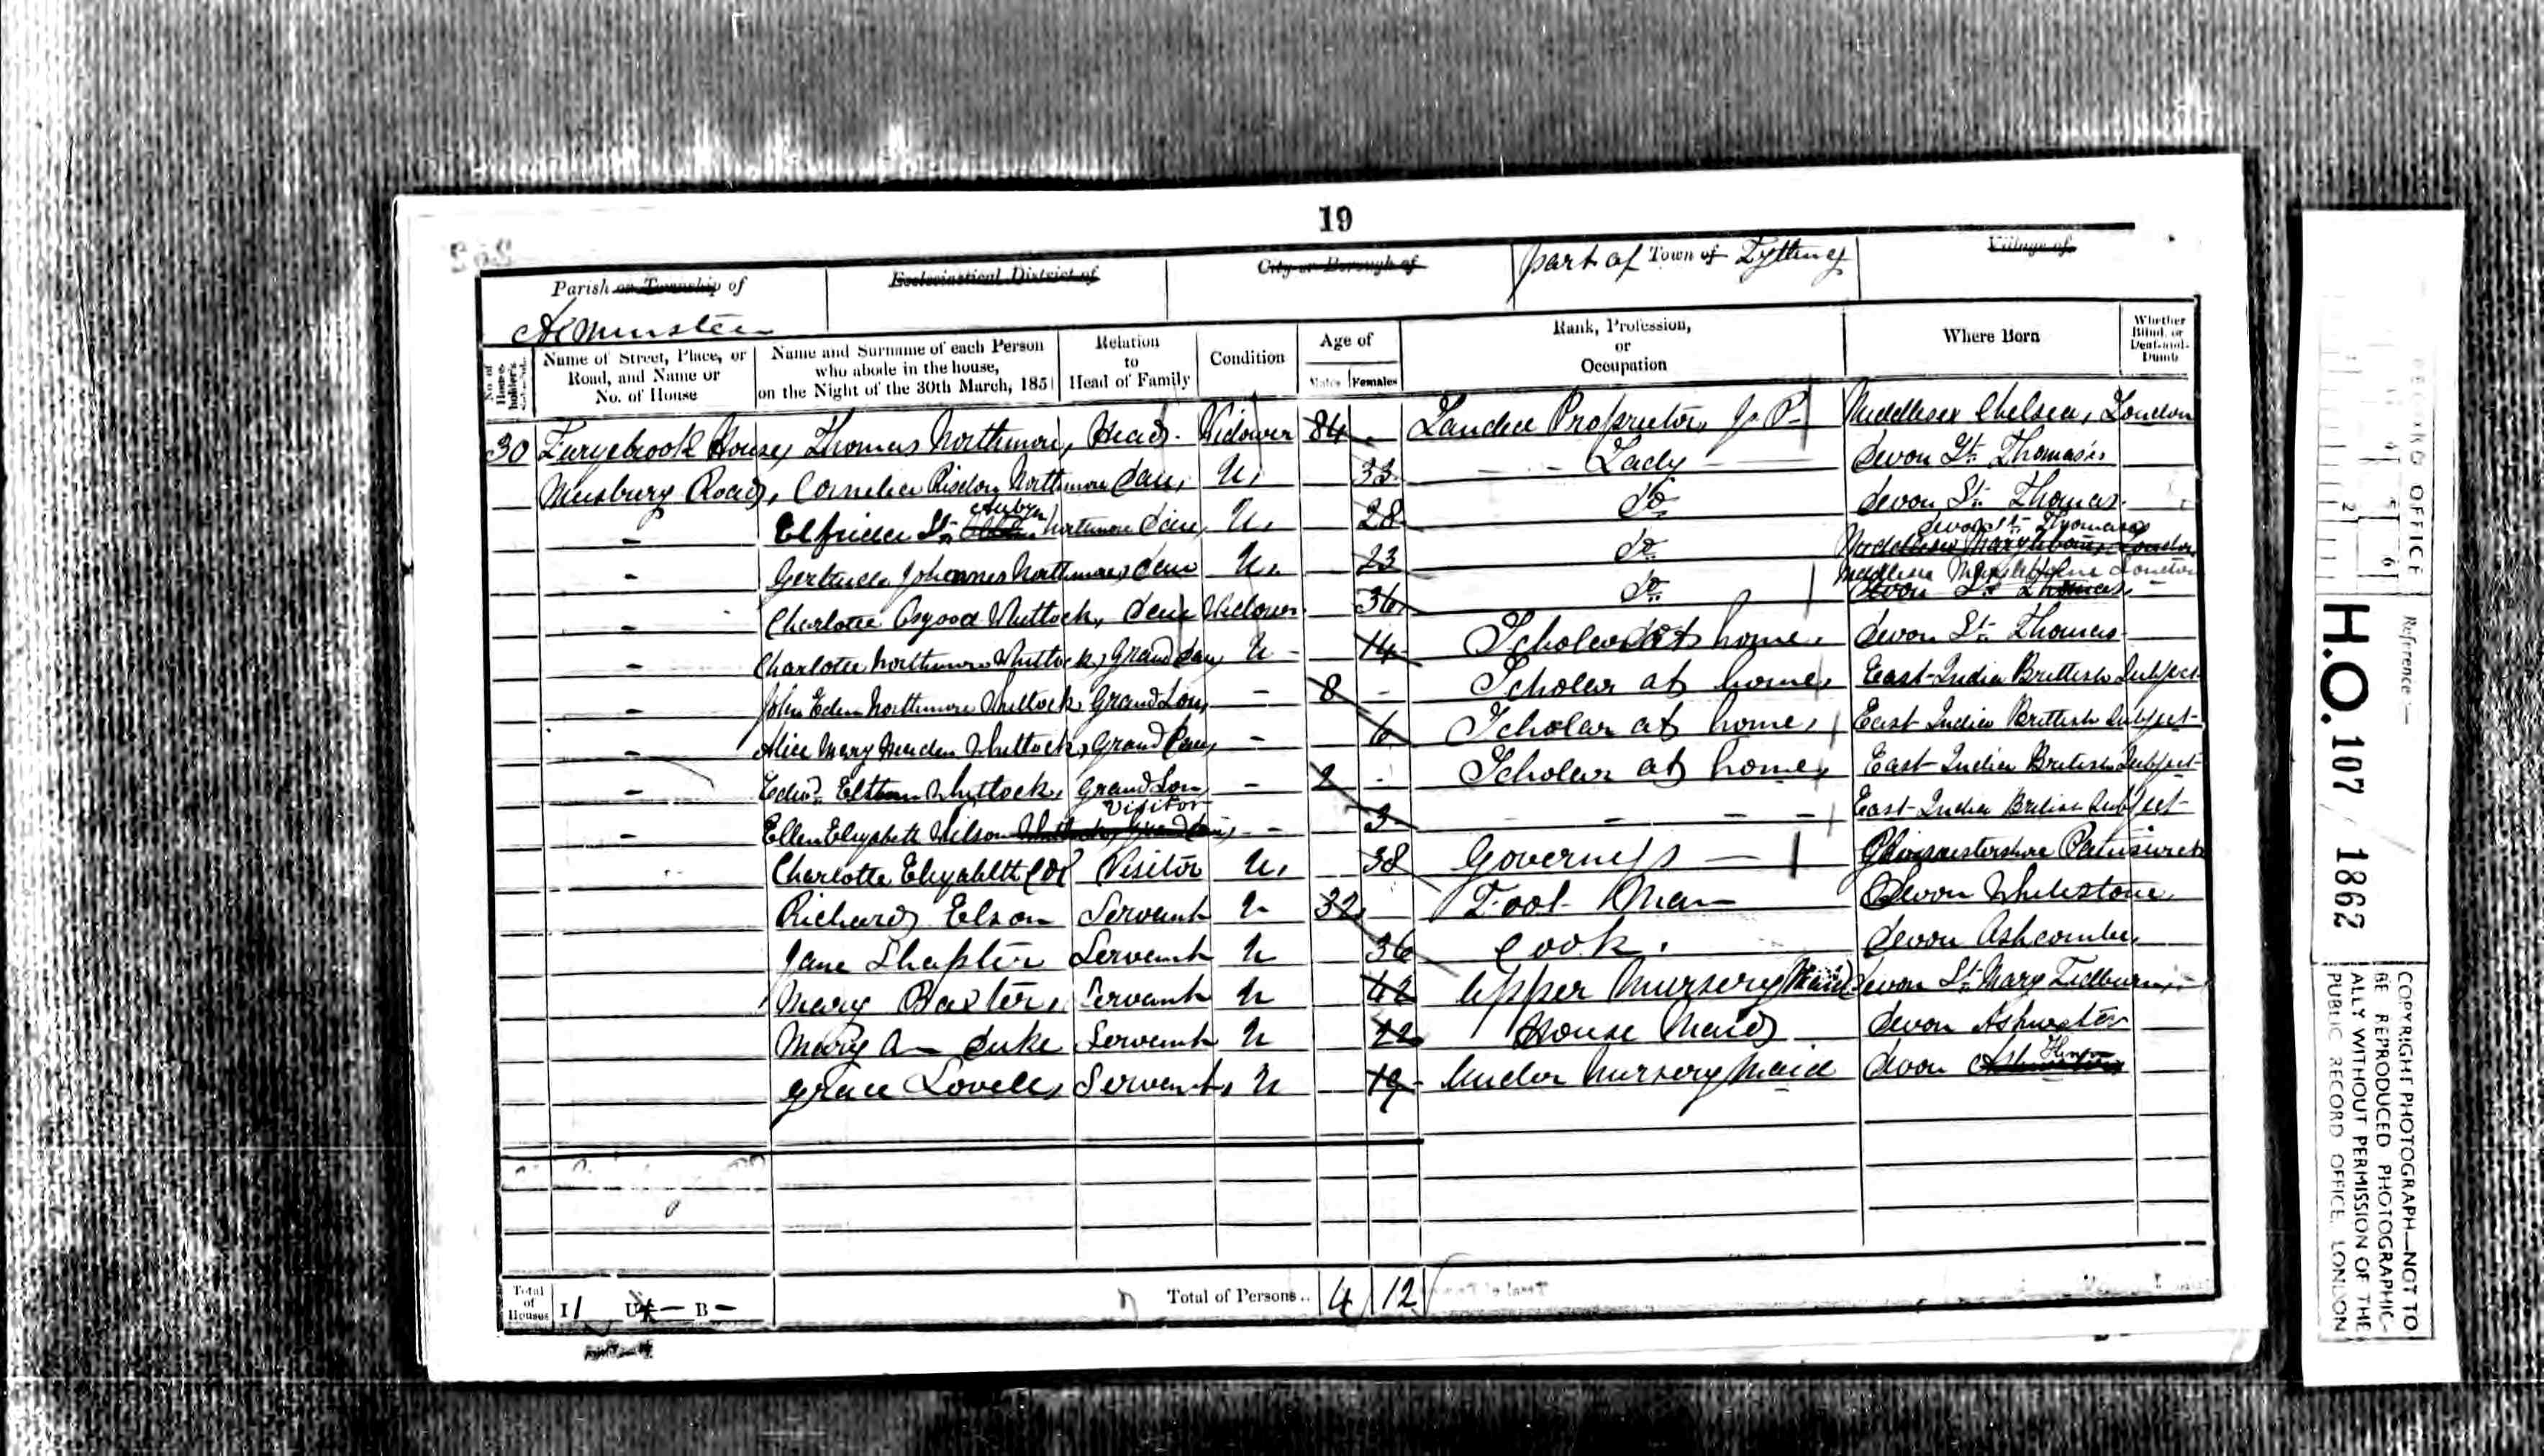 19
Parish or Township of
Ecclesiastical District of
City or Borough of
part of Town of Tything
Village of
Axminster
No. of House-holder's Schedule
Name of Street, Place, or Road, and Name or No. of House
Name and Surname of each Person who abode in the house, on the Night of the 30th March, 1851
Relation to Head of Family
Condition
Age of
Males Females
Rank, Profession, or Occupation
Where Born
Whether Blind, or Deaf-and-Dumb
30 Furzebrook House, Thomas Northmore, Head. Widower 84 - Landed Proprietor, J. P. Middlesex Chelsea, London
Musbury Road, Cornelia Risdon Northmore dau, U, 33 Lady Devon St. Thomas's
Elfrida St. Aubyn Northmore dau, U, 28 Do Devon St. Thomas
Gertrude Johannes Northmore, dau U, 23 Do Devon St. Thomas Middlesex Marylebone London
Charlotte Osgood Whitlock, dau Widow 36 Do Middlesex Marylebone London Devon St. Thomas
Charlotte Northmore Whitlock, Grand dau, U 14 Scholar at home, Devon St. Thomas
John Eden Northmore Whitlock, Grand Son, - 8 - Scholar at home, East India Brittish Subject
Alice Mary Whitlock, Grand Dau, - 6 Scholar at home, East India Brittish Subject
Edwd. Whitlock, Grand Son, - 2 - Scholar at home, East India British Subject
Ellen Elizabeth Wilson Visitor - 3 East India British Subject
Charlotte Elizabeth Cox Visitor U, 38 Governess Gloucestershire Painswick
Richard Elson Servant U 32 Foot Man Devon Whitestone
Jane Shapter Servant U 36 Cook. Devon Ashcombe
Mary Baxter, Servant U 42 Upper Nursery Maid Devon St. Mary Tedburn
Mary A Duke Servant U 22 House Maid Devon
Grace Lovell, Servant, U 19 Under Nursery Maid Devon
Total of Houses I 1 U - B -
Total of Persons.. 4 12
RECORD OFFICE
Reference :—
H.O. 107 / 1862
COPYRIGHT PHOTOGRAPH—NOT TO
BE REPRODUCED PHOTOGRAPHIC-
ALLY WITHOUT PERMISSION OF THE
PUBLIC RECORD OFFICE, LONDON